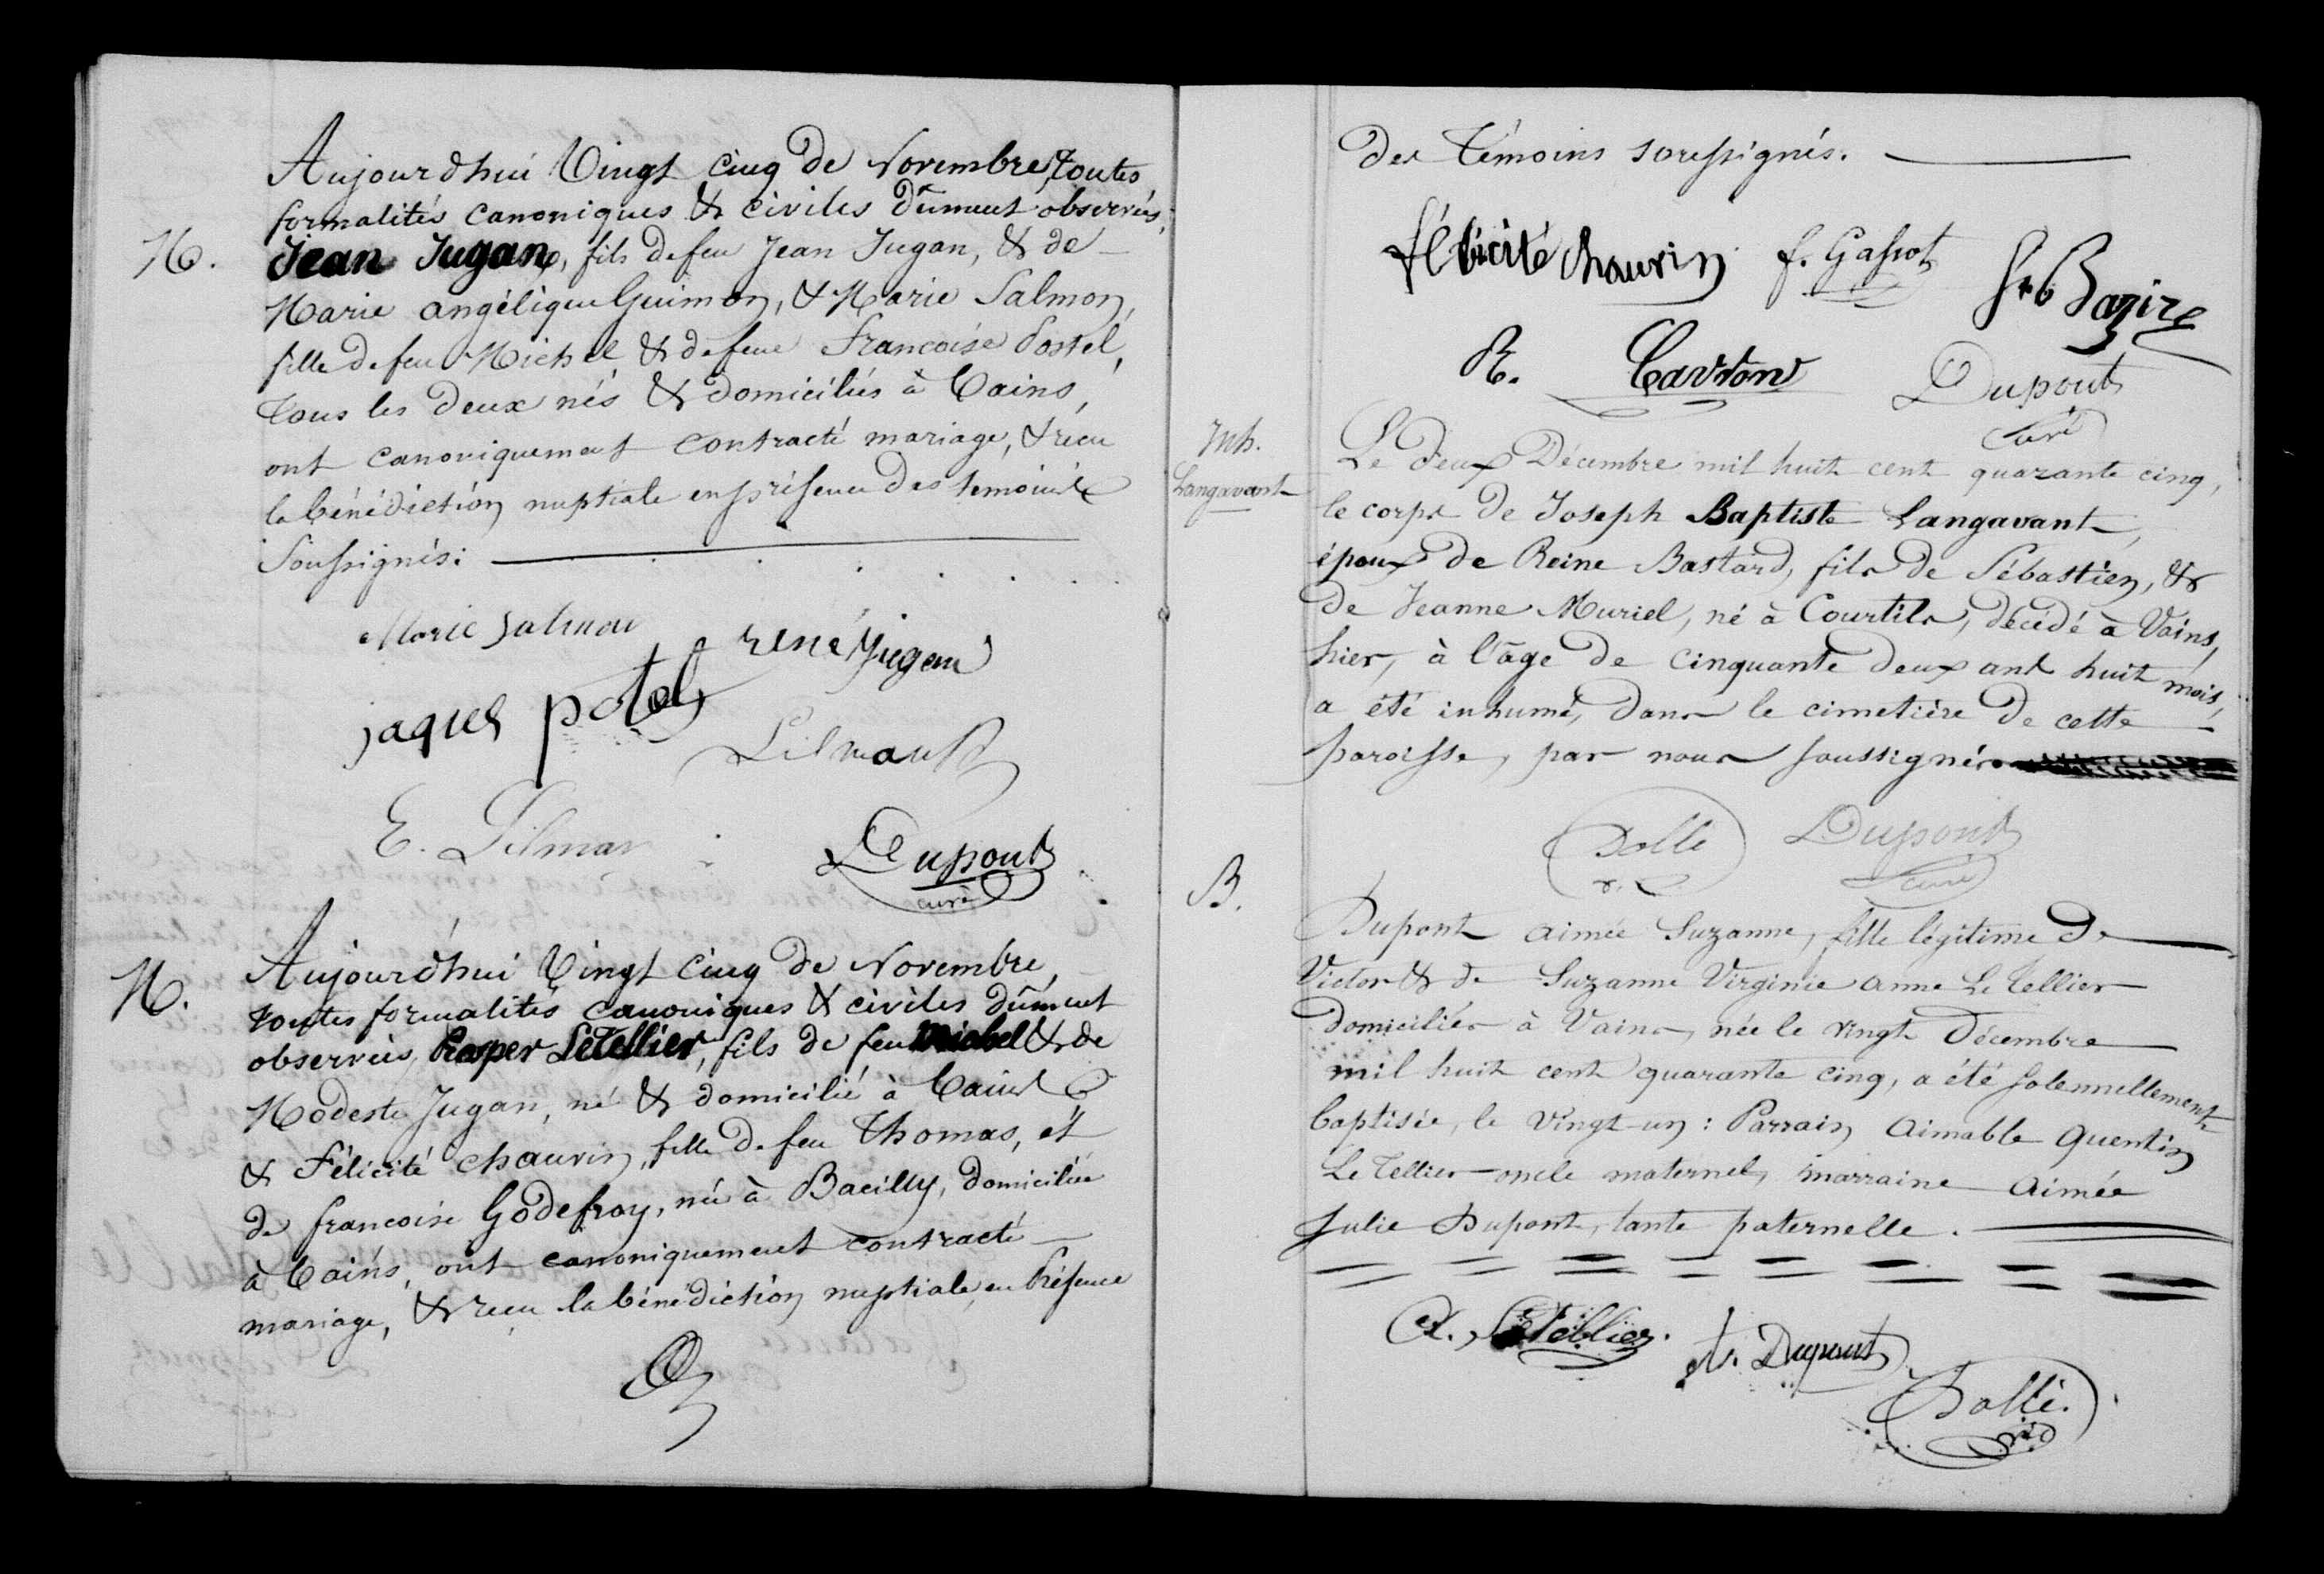 Aujourdhui Vingt Cinq de Novembre, toutes
formalités canoniques & civiles dûment observées,
M.
Jean Jugan, fils de feu Jean Jugan, & de
Marie angélique Guimon, & Marie Salmon,
fille de feu Michel & de feue Francoise Postel,
tous les deux nés & domiciliés à Vains,
ont canoniquement contracté mariage, & reçu
la bénédiction nuptiale en présence des temoins
Soussignés:
Marie Salmon
rené Jugan
jaques potel
E.
Dupont
curé
M.
Aujourd'hui Vingt Cinq de Novembre,
toutes formalités canoniques & civiles dûment
observées, Prosper LeTellier, fils de feu Michel & de
Modeste Jugan, né & domicilié à Vains
& Félicité Chauvin, fille de feu Thomas, et
de francoise Godefroy, née à Bacilly, domiciliée
à Vains, ont canoniquement contracté
mariage, & reçu la bénédiction nuptiale, en Présence
des Témoins soussignés.
félicité Chauvin f. Gassot
Bazire
R. Carron Dupont
Curé
Inh.
Langavant
Le deux Décembre mil huit cent quarante cinq,
le corps de Joseph Baptiste Langavant,
époux de Reine Bastard, fils de Sébastien, &
de Jeanne Muriel, né à Courtils, décédé à Vains,
hier, à l'âge de cinquante deux ans huit mois,
a été inhumé, dans le cimetière de cette
paroisse, par nous soussignés
Dolle
v.
Dupont
curé
B.
Dupont aimée Suzanne, fille légitime de
Victor & de Suzanne Virginie anne Le Tellier
domiciliés à Vains, née le vingt Décembre
mil huit cent quarante cinq, a été solennellement
baptisée, le vingt-un : Parrain Aimable Quentin
Le Tellier oncle maternel, marraine Aimée
Julie Dupont, tante paternelle.
A. LeTellier.
Dupont
Dolle.